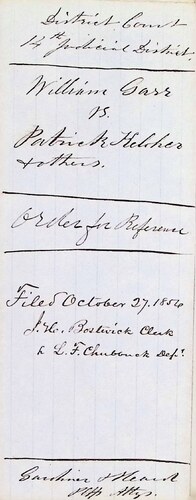 District Court
14th Judicial District.
William Carr
vs.
Patrick Kelcher
& others.
Order for Reference
Filed October 27. 1856
J. H. Bostwick Clerk
& L. F. Chubbuck Dep.
Gardiner & Heard
Plffs Attys.